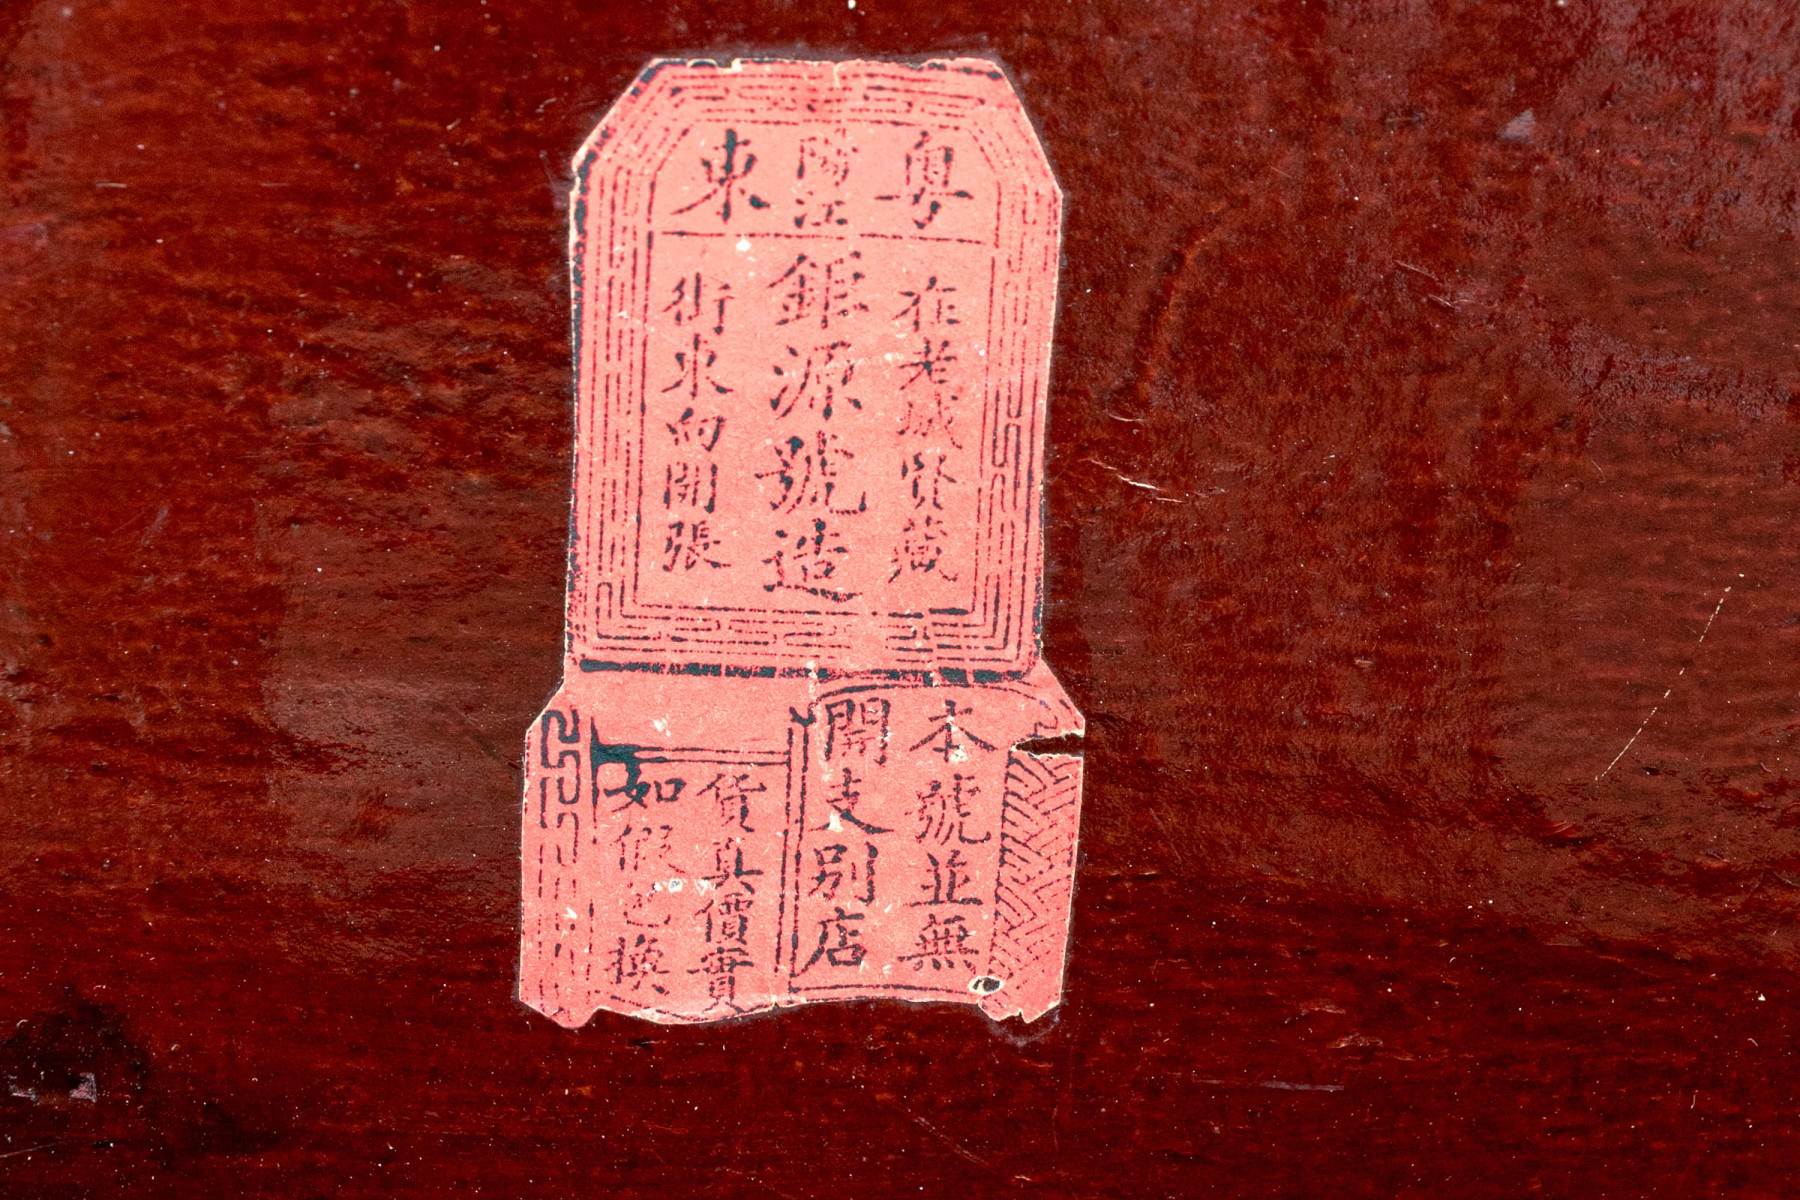 粵東
陽江
在老城賢藏
鉅源號造
街東向開張
本號並無
開支別店
貨真價實
如假包換